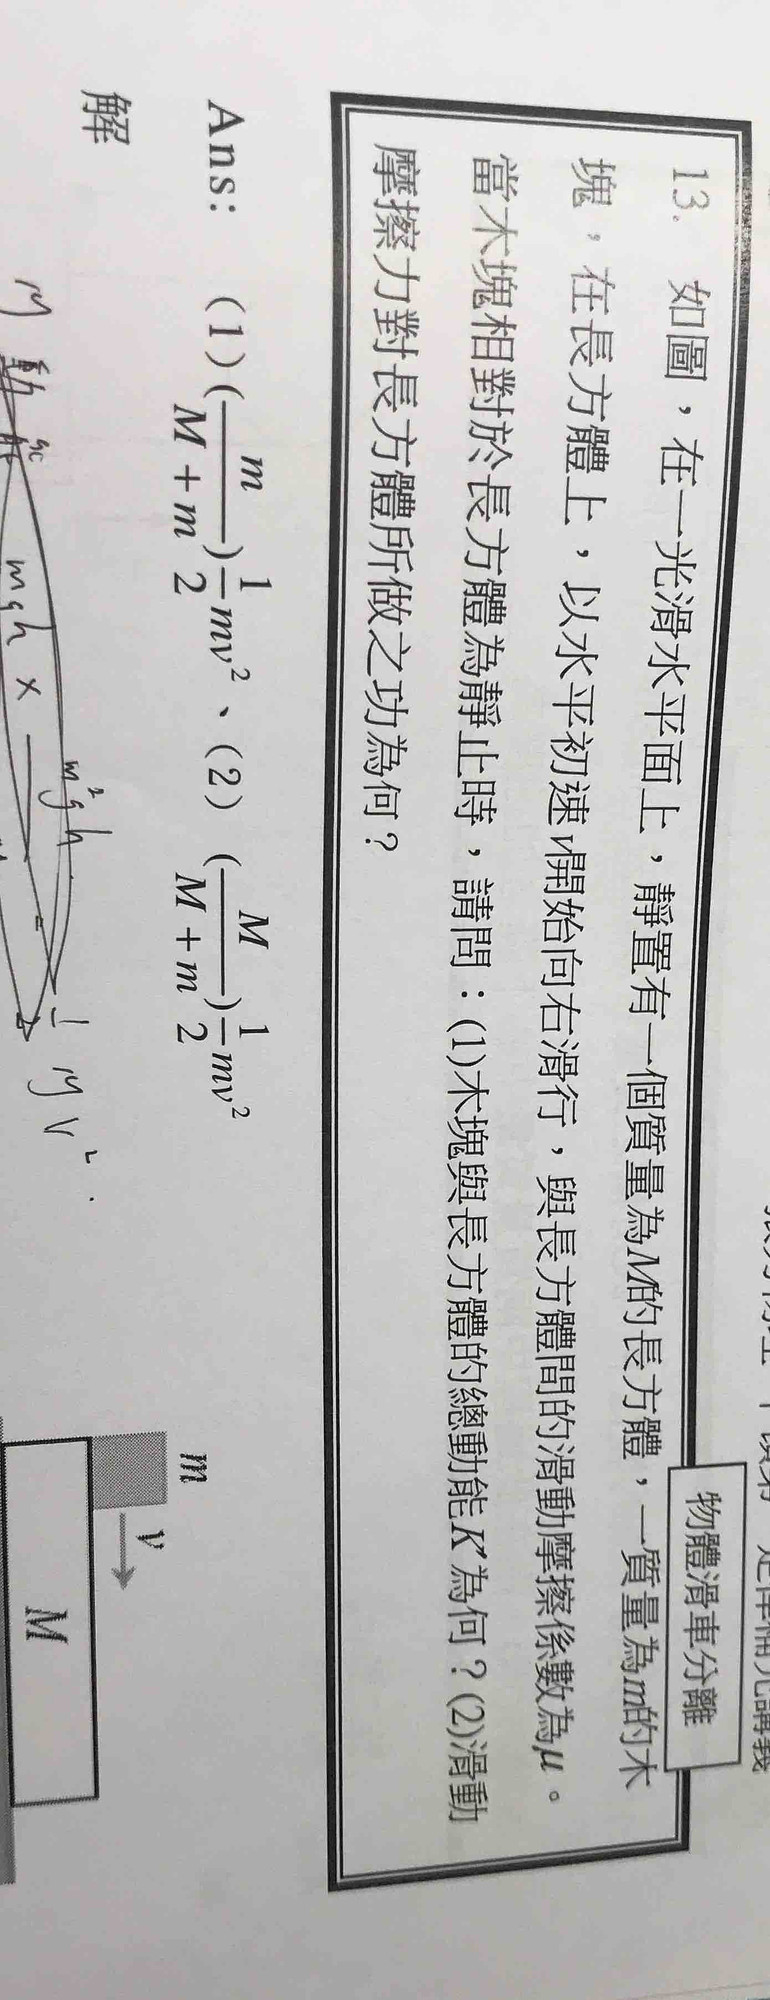 物體滑車分離
13. 如圖，在一光滑水平面上，靜置有一個質量為M的長方體，一質量為m的木
塊，在長方體上，以水平初速v開始向右滑行，與長方體間的滑動摩擦係數為μ。
當木塊相對於長方體為靜止時，請問：(1)木塊與長方體的總動能K'為何？(2)滑動
摩擦力對長方體所做之功為何？
Ans: (1) (m/(M+m)) 1/2 mv²、(2) (M/(M+m)) 1/2 mv²
解
m
v
M
mgh ×
m²gh